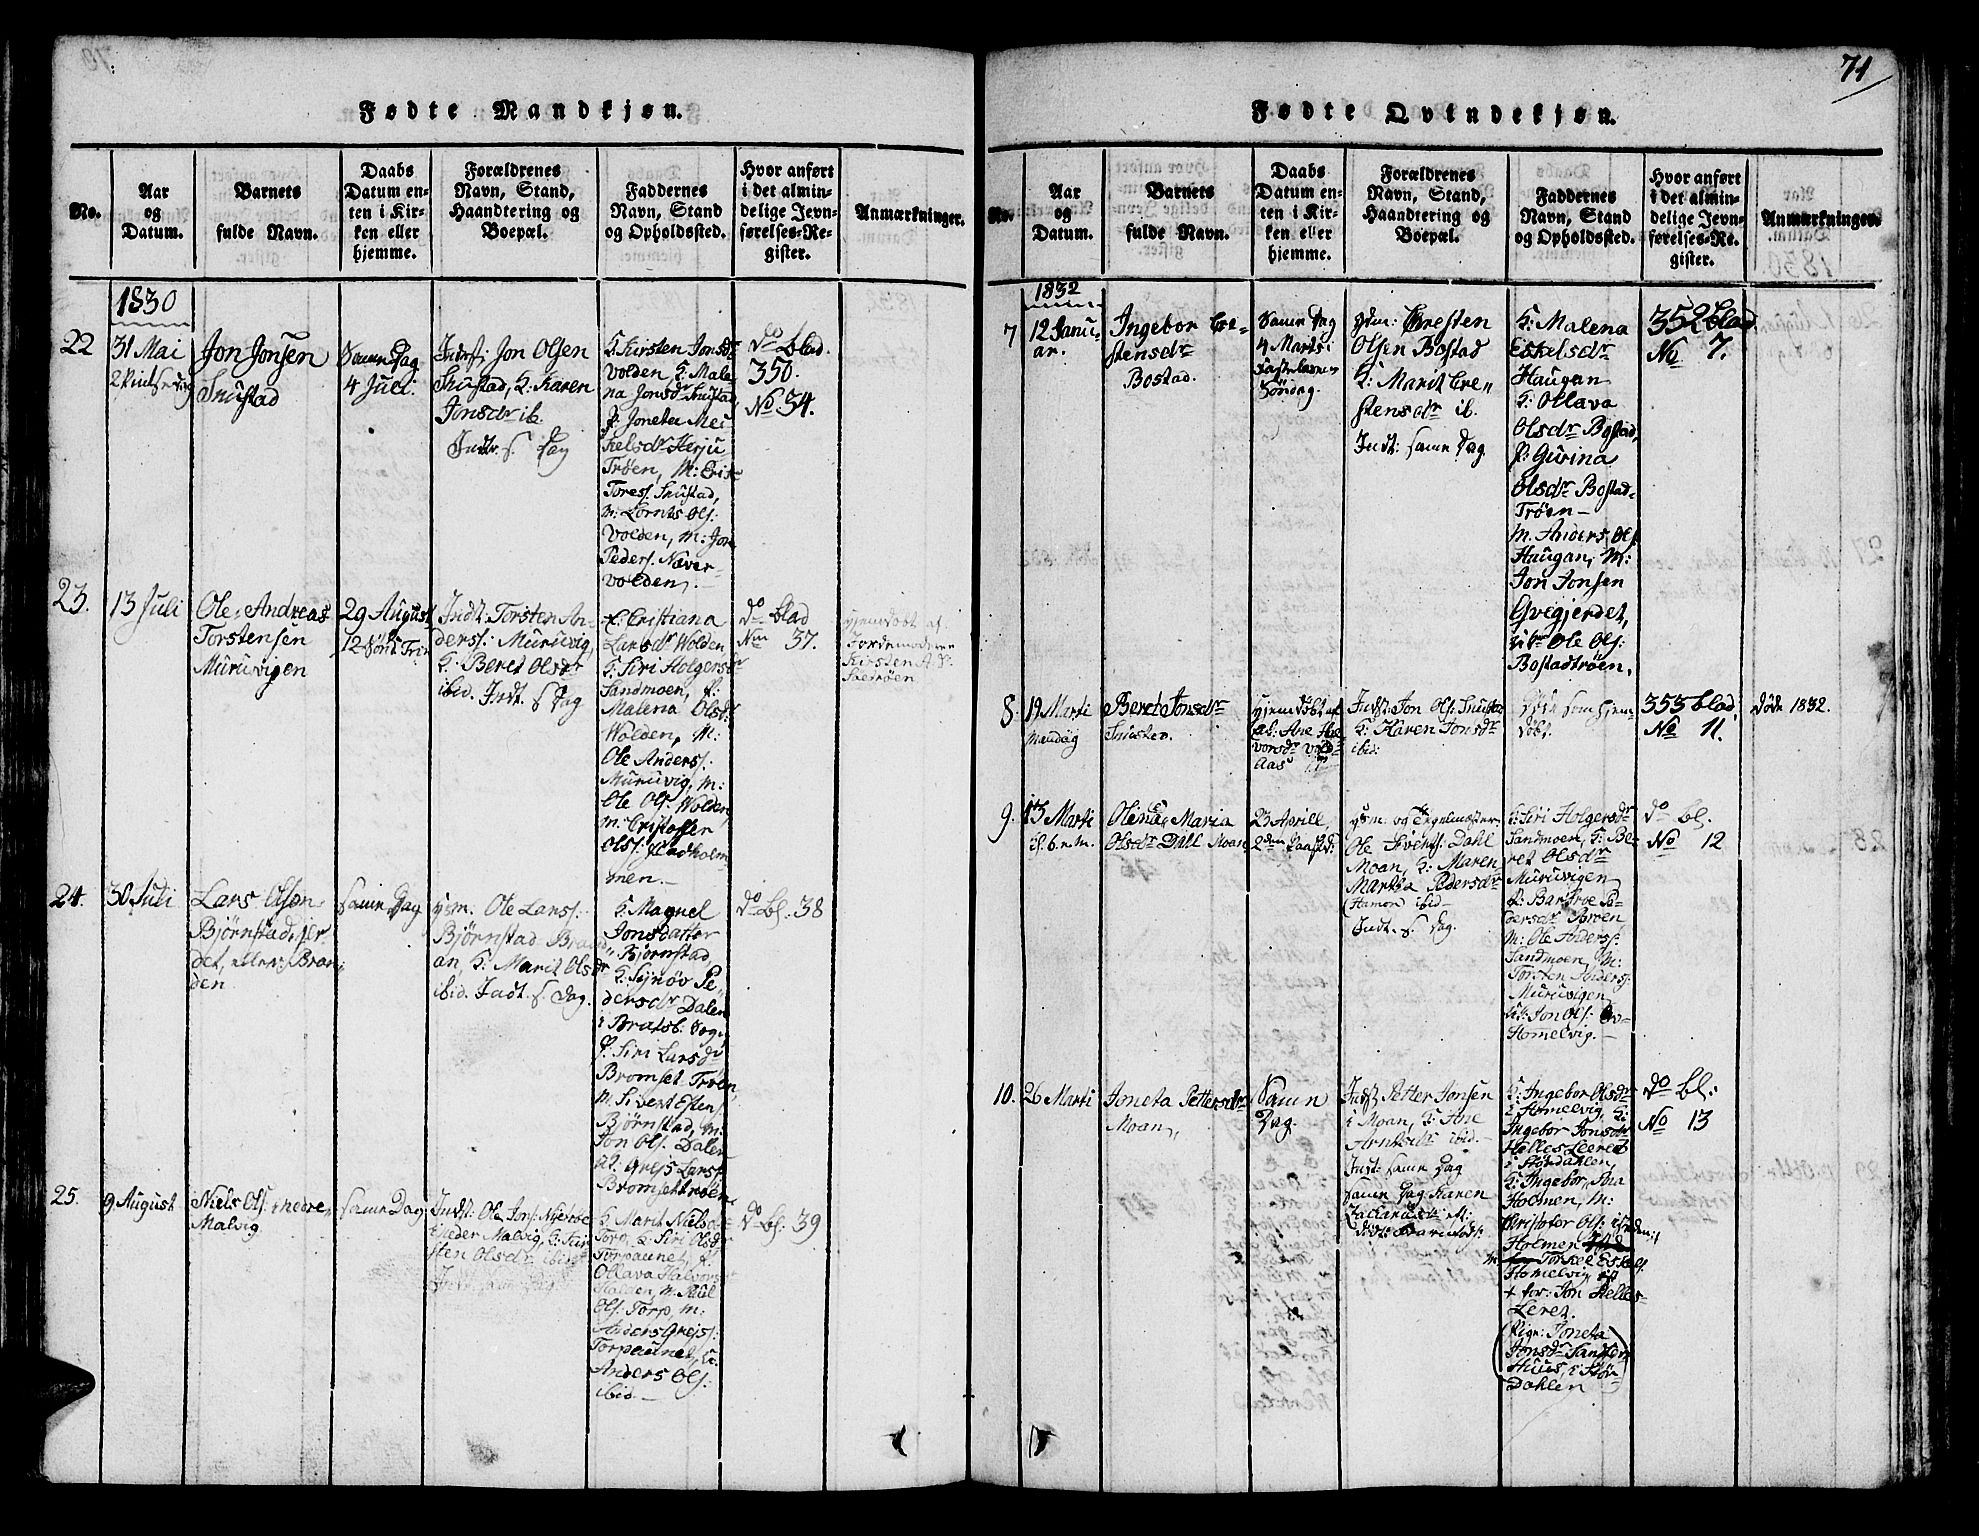 71
Fødte Mandkjøn.
No.
Aar
og
Datum.
Barnets
fulde Navn.
Daabs
Datum en-
ten i Kir-
ken eller
hjemme.
Forældrenes
Navn, Stand,
Haandtering og
Boepæl.
Faddernes
Navn, Stand
og Opholdssted.
Hvor anført
i det almin-
delige Jevn-
førelses-Re-
gister.
Anmærkninger.
1830
22
31 Mai
Jon Jonsen
Snustad
Samme Dag
4 Juli
Jndst: Jon Olsen
Snustad, K: Karen
Jonsdr ib.
Indtr. s. Dag
K: Kirsten Jonsdr
Volden, K: Male-
na Jonsdr Snustad,
P: Joneta Mec-
kelsdr Herju-
Trøen, M: Erik
Toress: Snustad,
M: Lornts Ols:
Volden, M: Jon
Peders: Næver-
volden.
Do blad
350.
No 34.
23.
13 Juli
Ole Andreas
Torstensen
Muruvigen
29 August
12 Sønd. Trin
Indst: Torsten An-
derss: Muruvig,
K: Beret Olsdr
ibid. Indt. s Dag
K: Cristiana
Larsdr Wolden,
K: Siri Holgersdr
Sandmoen, P:
Malena Olsdr
Wolden, M:
Ole Anderss:
Muruvig, M:
Ole Ols: Wolden
M: Cristoffer
Ols: Hladholm-
men.
Do blad
No 37.
hjemdøbt af
Jordemoderen
Kirsten A. D.
Sætrøen
24.
30 Juli
Lars Olsen
Bjørnstadgjer-
det, eller Bran-
den
Samme Dag
Hsm. Ole Larss:
Bjørnstad Brand-
an, K: Marit Olsdr
ibid. Indt. s. Dag.
K: Magnel
Jonsdatter
Bjørnstad,
K: Synøv Pe-
dersdr Dalen
i Bratsb: Sogn,
P: Siri Larsdr
Bromset Trøen,
M: Sivert Esten
Bjørnstad, M:
Jon Ols: Dalen
U: Grejs Larss:
Bromsettrøen
Do bl. 38
25.
9 August
Niels Ols: nedre
Malvig
Samme Dag
Indst: Ole Jons: Nierboe
i Neder Malvig, K: Kir-
sten Olsdr ibid
Indt. samme Dag.
K: Marit Nielsdr
Torp, K: Siri Olsdr
Torpaunet, P:
Ollava Halvors
Halden, M: Paul
Ols: Torp, M:
Anders Grejs:
Torpaunet, U:
Anders Ols:
ibid.
Do bl: 39
Fødte Qvindekjøn.
No.
Aar
og
Datum.
Barnets
fulde Navn.
Daabs
Datum en-
ten i Kir-
ken eller
hjemme.
Forældrenes
Navn, Stand,
Haandtering og
Boepæl.
Faddernes
Navn, Stand
og Opholdssted.
Hvor anført
i det almin-
delige Jevn-
førelses-Re-
gister.
Anmærkninger.
1832
7
12 Janu-
ar.
Ingebor Cre-
stensdr
Bostad.
Samme Dag
4 Marts i
Fastelavns
Søndag.
Hsm: Cresten
Olsen Bostad
K: Marit Cre-
stensdr ib.
Indt: samme Dag
K: Malena
Eskelsdr
Haugan
K: Ollava
Olsdr Bostad,
P: Gurina
Olsdr Bostad-
Trøen
M. Anders Ols:
Haugan, M:
Jon Jonsen
Gvegjerdet,
Ole Ols:
Bostadtrøen.
352 blad
No 7.
8.
19 Marti
Mandag
Beret Jonsdr
Snusten.
hjemdøbt af
K: Ane Hal-
vorsdr Vold-
Aas
Indst: Jon Ols: Snustad
K: Karen Jonsdr
ibid:
Døde som hjem-
døbt.
353 blad
No 11.
Døde 1832.
9.
13 Marti
Olina Maria
Olsdr Dahl Moan
23 Aprill,
2den Paaskd:
Hsm. og Teglmester
Ole Svens: Dahl
Moan, K: Maren
Martha Pedersdr
(Hamon ibid
Indt. s. Dag.
K: Siri Holgersdr
Sandmoen, K: Be-
ret Olsdr
Muruvigen
P: Barbroe Pe-
dersdr Søreen
M: Ole Anderss:
Sandmoen, M:
Torsten Anderss:
Muruvigen
U: Jon Ols:
Homelvig.
Do bl.
No 12
10.
26 Marti
Joneta Pettersdr
Moan,
Samme
Dag.
Indst: Petter Jonsen
i Moan, K: Ane
Arntsdr ibid.
Indt: samme Dag
Samme Dag Karen
Zachariasdr
K: Ingebor Olsdr
i Homelvig, K:
Ingebor Jonsdr
Helles Leeret
i Størdahlen,
K: Ingebor,
Holmen, M:
Christofer Ols:
Holmen
M: Torkel Eskels:
Homelvig,
+ for: Jon Helles-
Leret.
(Pige: Joneta
Jonsdr Sand
Huus, i Stør-
Dahlen)
Do bl:
No 13